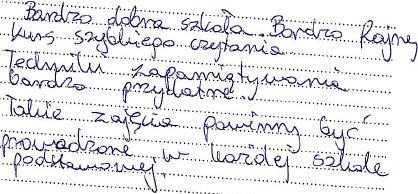 Bardzo dobra szkoła. Bardzo fajny
kurs szybkiego czytania
Techniki zapamiętywania
bardzo przydatne.
Takie zajęcia powinny być
prowadzone w każdej szkole
podstawowej.